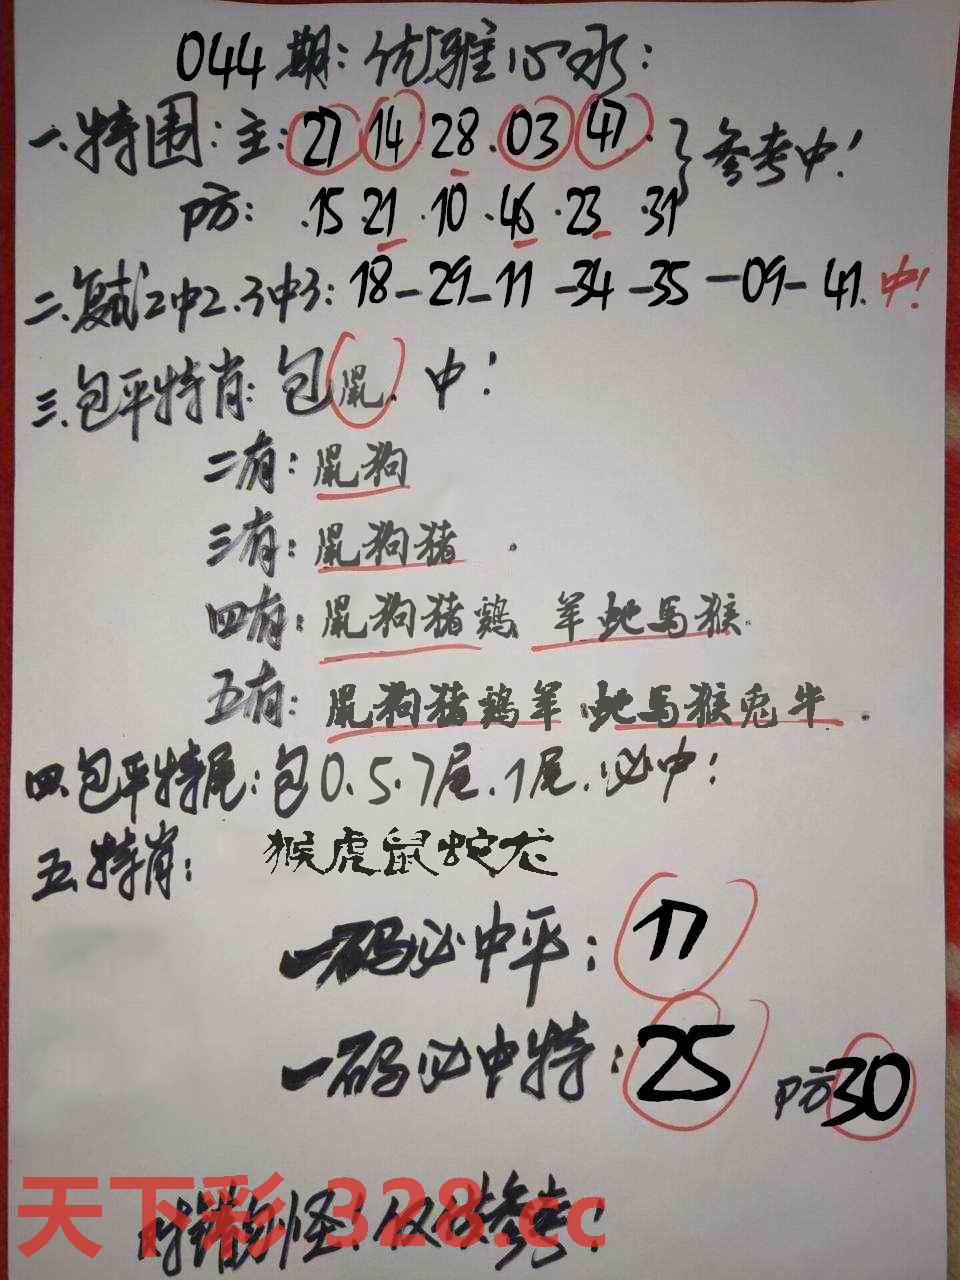 044期:优雅心水:
一.特围:主:27 14 28.03 47.}参考中!
防: .15 21 .10 .46 .23 .31
二.复试2中2.3中3:18-29-11-34-35-09-41.中!
三.包平特肖:包鼠.中!
二有:鼠狗
三有:鼠狗猪.
四有:鼠狗猪鸡 羊蛇马猴.
五有:鼠狗猪鸡羊.蛇马猴兔牛.
四.包平特尾:包0.5.7尾.1尾.必中!
五.特肖: 猴虎鼠蛇龙
一码必中平:17
一码必中特:25 防30
对错勿怪!仅供参考!
天下彩 328.cc